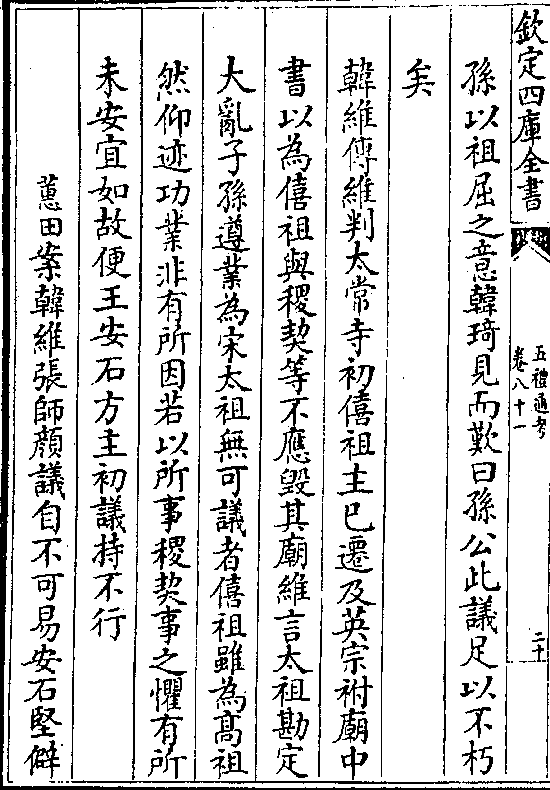 欽定四庫全書
五禮通考
卷八十一
二十
孫以祖屈之意韓琦見而歎曰孫公此議足以不朽
矣
韓維傳維判太常寺初僖祖主已遷及英宗祔廟中
書以為僖祖與稷契等不應毀其廟維言太祖勘定
大亂子孫遵業為宋太祖無可議者僖祖雖為高祖
然仰迹功業非有所因若以所事稷契事之懼有所
未安宜如故便王安石方主初議持不行
蕙田案韓維張師顔議自不可易安石堅僻